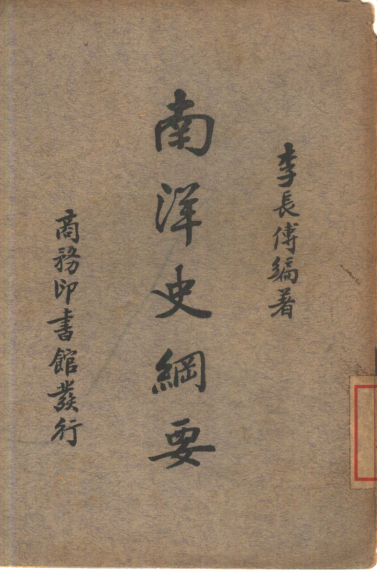 李長傅編著
南洋史綱要
商務印書館發行